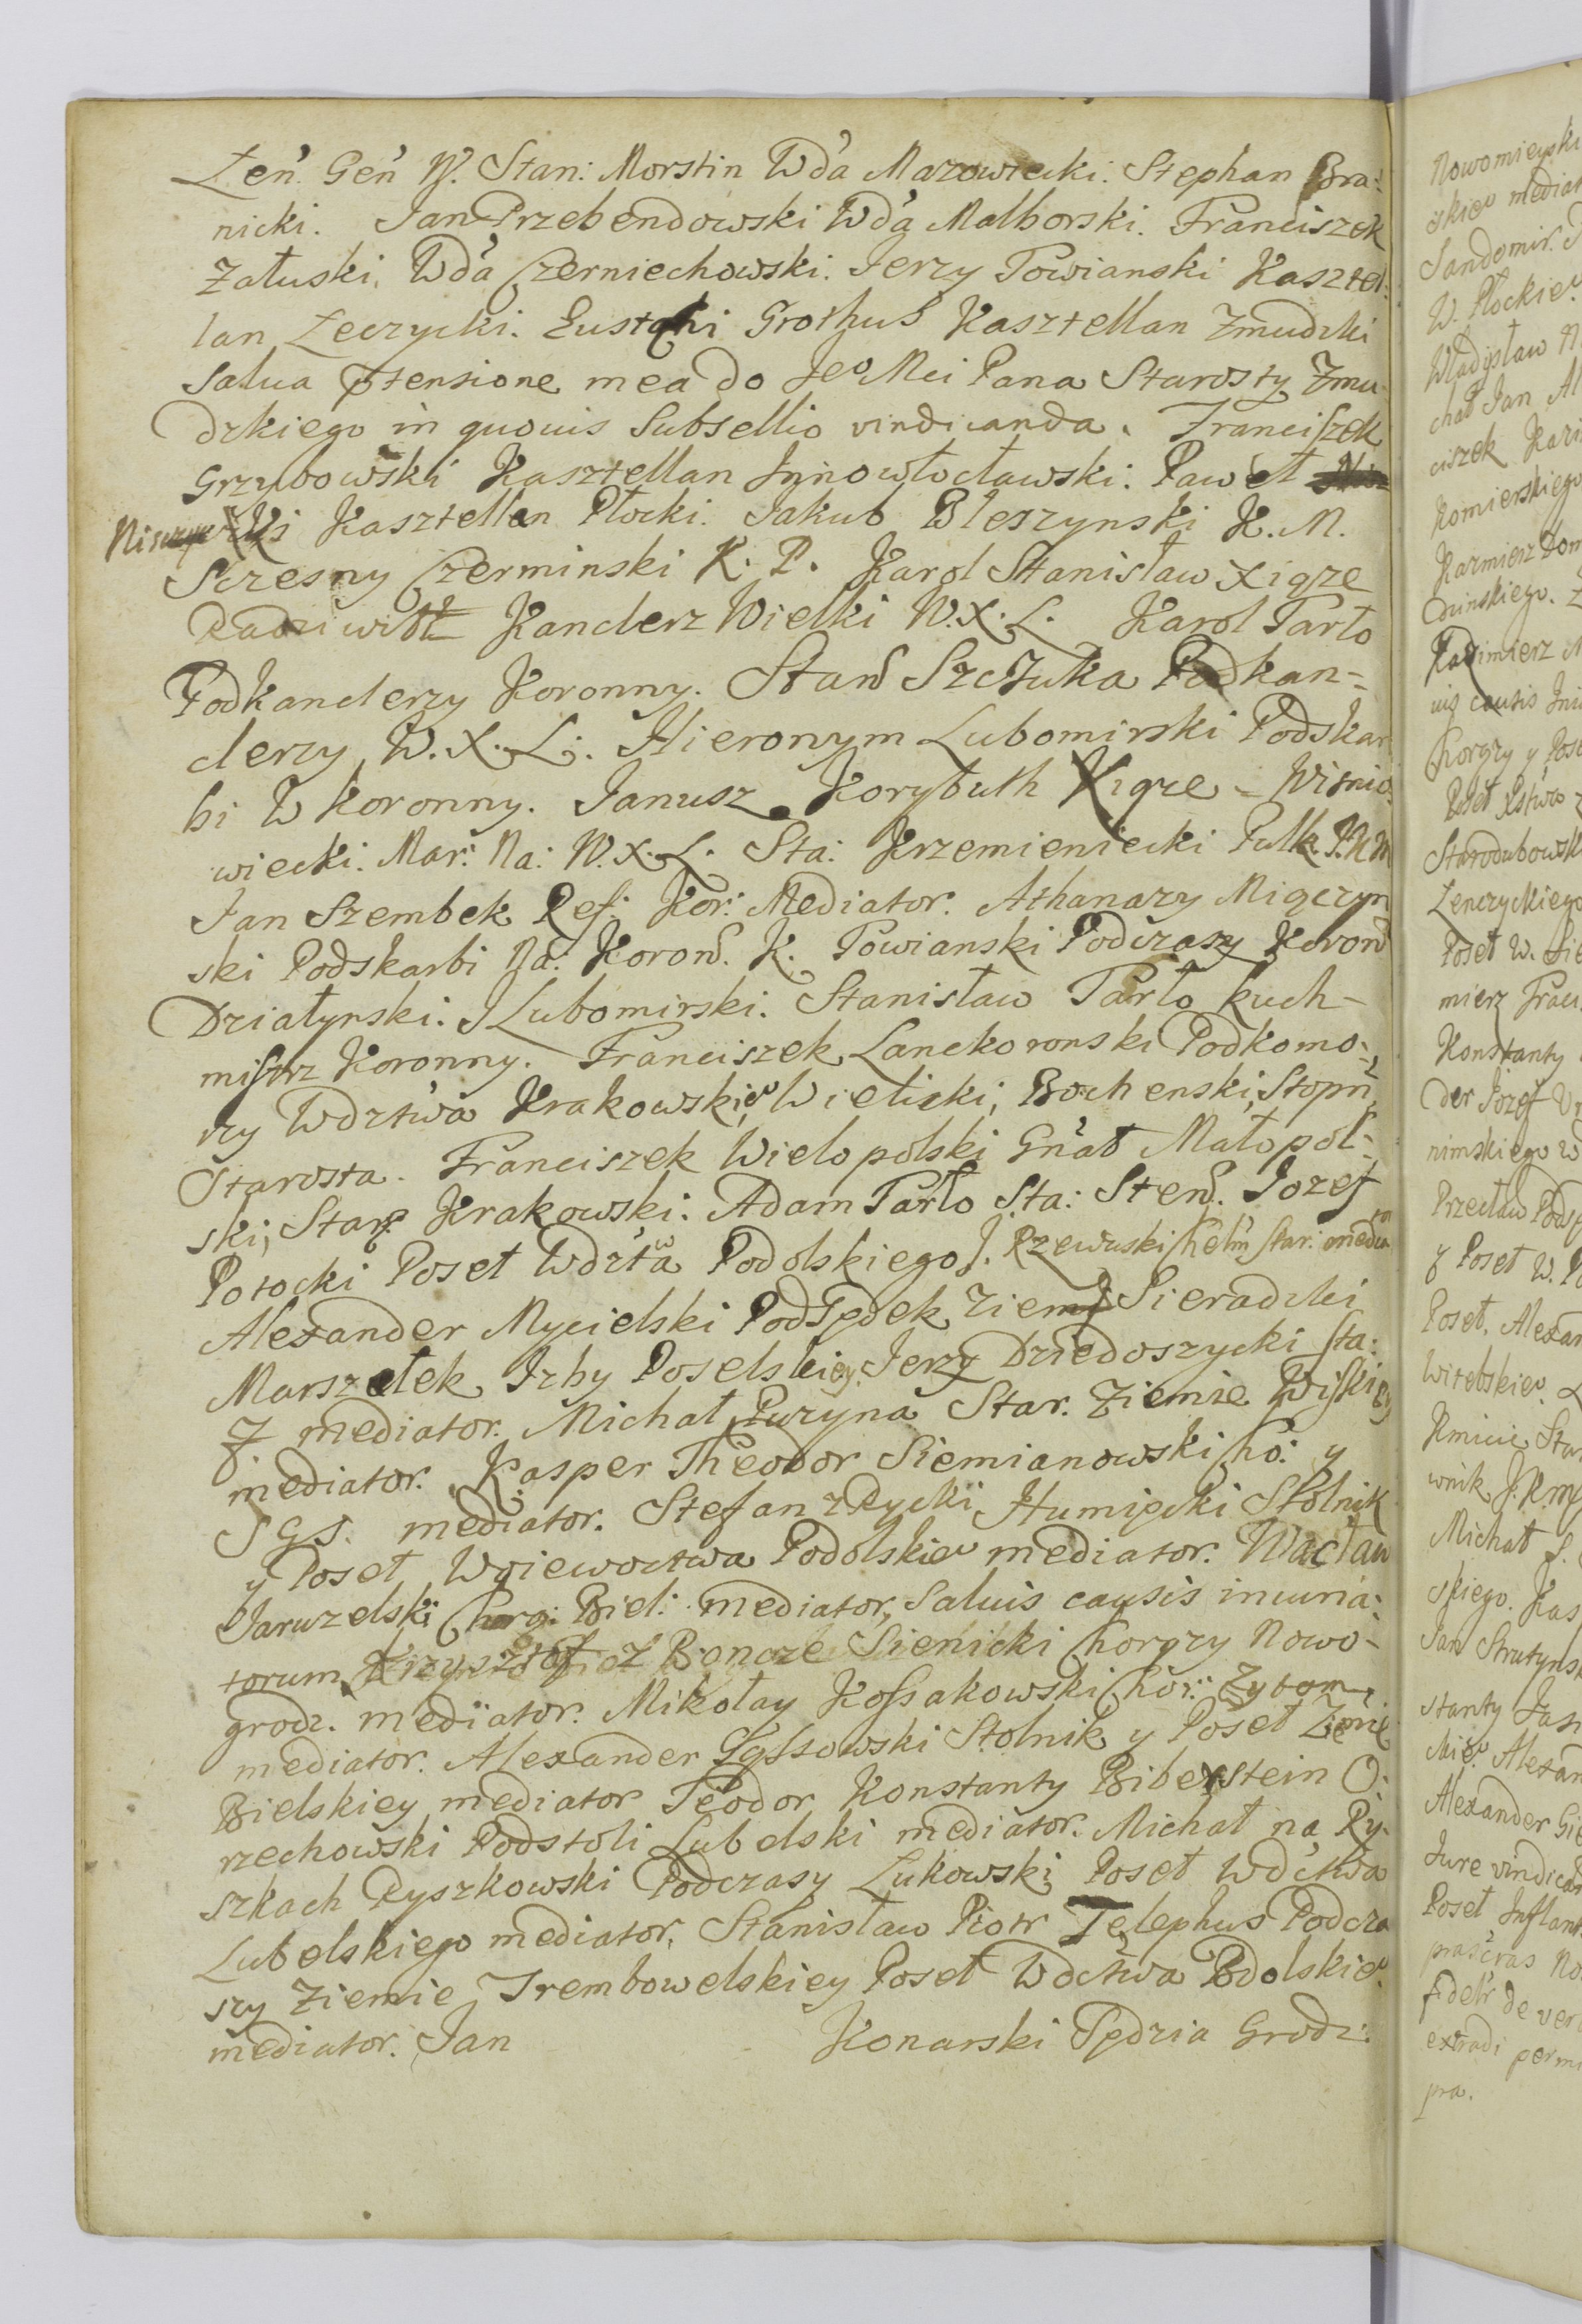 Łeń. Geń W. Stan: Morstin Wda Mazowiecki: Stephan Bra:
nicki. Jan Przebendowski Wda Malborski. Franciszek
Załuski, Wda Czerniechowski. Jerzy Towianski Kasztel:
lan Łeczycki. Eustachi Grothus Kasztellan Zmudzki
Salua ptensione mea do Jeo Mci Pana Starosty Zmu
dzkiego in quouis Subsellio vindicanda. Franciszek
Grzybowski Kasztellan Jnnowłocławski: Paweł
Niszczycki Kasztellan Płocki. Jakub Bleszynski K. M.
Sczesny Czerminski K. P. Karol Stanisław Xiąze
Radziwiłł Kanclerz Wielki W. X. L. Karol Tarło
Podkanclerzy Koronny. Stan Szczuka Podkan-
clerzy W. X. L. Hieronym Lubomirski Podskar
bi W Koronny. Janusz Korybuth Xiąze - Wisnio
wiecki. Mar: Na: W. X. L. Sta: Krzemieniecki Pułk. J.K.M
Jan Szembek Ref: Kor: Mediator. Athanazy Miączyn
ski Podskarbi Na: Koron. K. Towianski Podczaszy Koron
Działynski. J Lubomirski. Stanisław Tarło kuch-
mistrz Koronny. Franciszek Lanckoronski Podkomo-
rzy Wdztwa Krakowskieo, Wielicki, Bochenski, Stopn,
Starosta. Franciszek Wielopolski Gnał Małopol-
ski, Star Krakowski: Adam Tarło Sta: Sten. Jozef
Potocki Poseł Wdztwa Podolskiego J. Rzewuski Chełm Star: mediator
Alexander Mycielski Podsędek Ziem Sieradzki
Marszałek Jzby Poselskiey. Jerzy Dziedoszycki Sta:
Z mediator. Michał Puzyna Star. Ziemie Wiskiey
mediator. Kasper Theodor Siemianowski Cho: y
S G S. mediator. Stefan z Rycki Humięcki Stolnik
y Poseł Woiewoctwa Podolskieo mediator. Wacław
Jaruzelski Chorą: Biel: mediator, Saluis causis incuria:
torum, Krzysztof z Boncze Sienicki Chorązy Nowo-
grodz. mediator. Mikołay Kossakowski Chor: Zytom:
mediator. Alexander Łęssowski Stolnik y Poseł Ziemie
Bielskiey mediator Teodor Konstanty Biberstein O:
rzechowski Podstoli Lubelski mediator. Michał na Ry-
szkach Ryszkowski Podczasy Łukowski Poseł Wdctwa
Lubelskiego mediator, Stanisław Piotr Telephus Podcza
szy Ziemie Trembowelskiey Poseł Wdctwa Podolskieo.
mediator. Jan Konarski Sędzia Grodz:
Nowomieyski
skieo mediat
Sandomir.
W. Płockieo.
Władysław
chał Jan
ciszek Kazi
Komierskiego
Kazmierz Dom
Kazimierz
Chorązy y Pos
Starodubowsk
Łenczyckiego
Poseł W. Sie
mierz
Konstanty
der Jozef
nimskiego W
y Poseł W. Po
Poseł. Alexan
Witebskieo.
Kmicic Star
wnik J.K.M
Michał
skiego. Kas
Jan Strutynsk
stanty
Alexan
Alexander Gie
Jure vindican
Poseł Jnflant
extradi permi
pra.